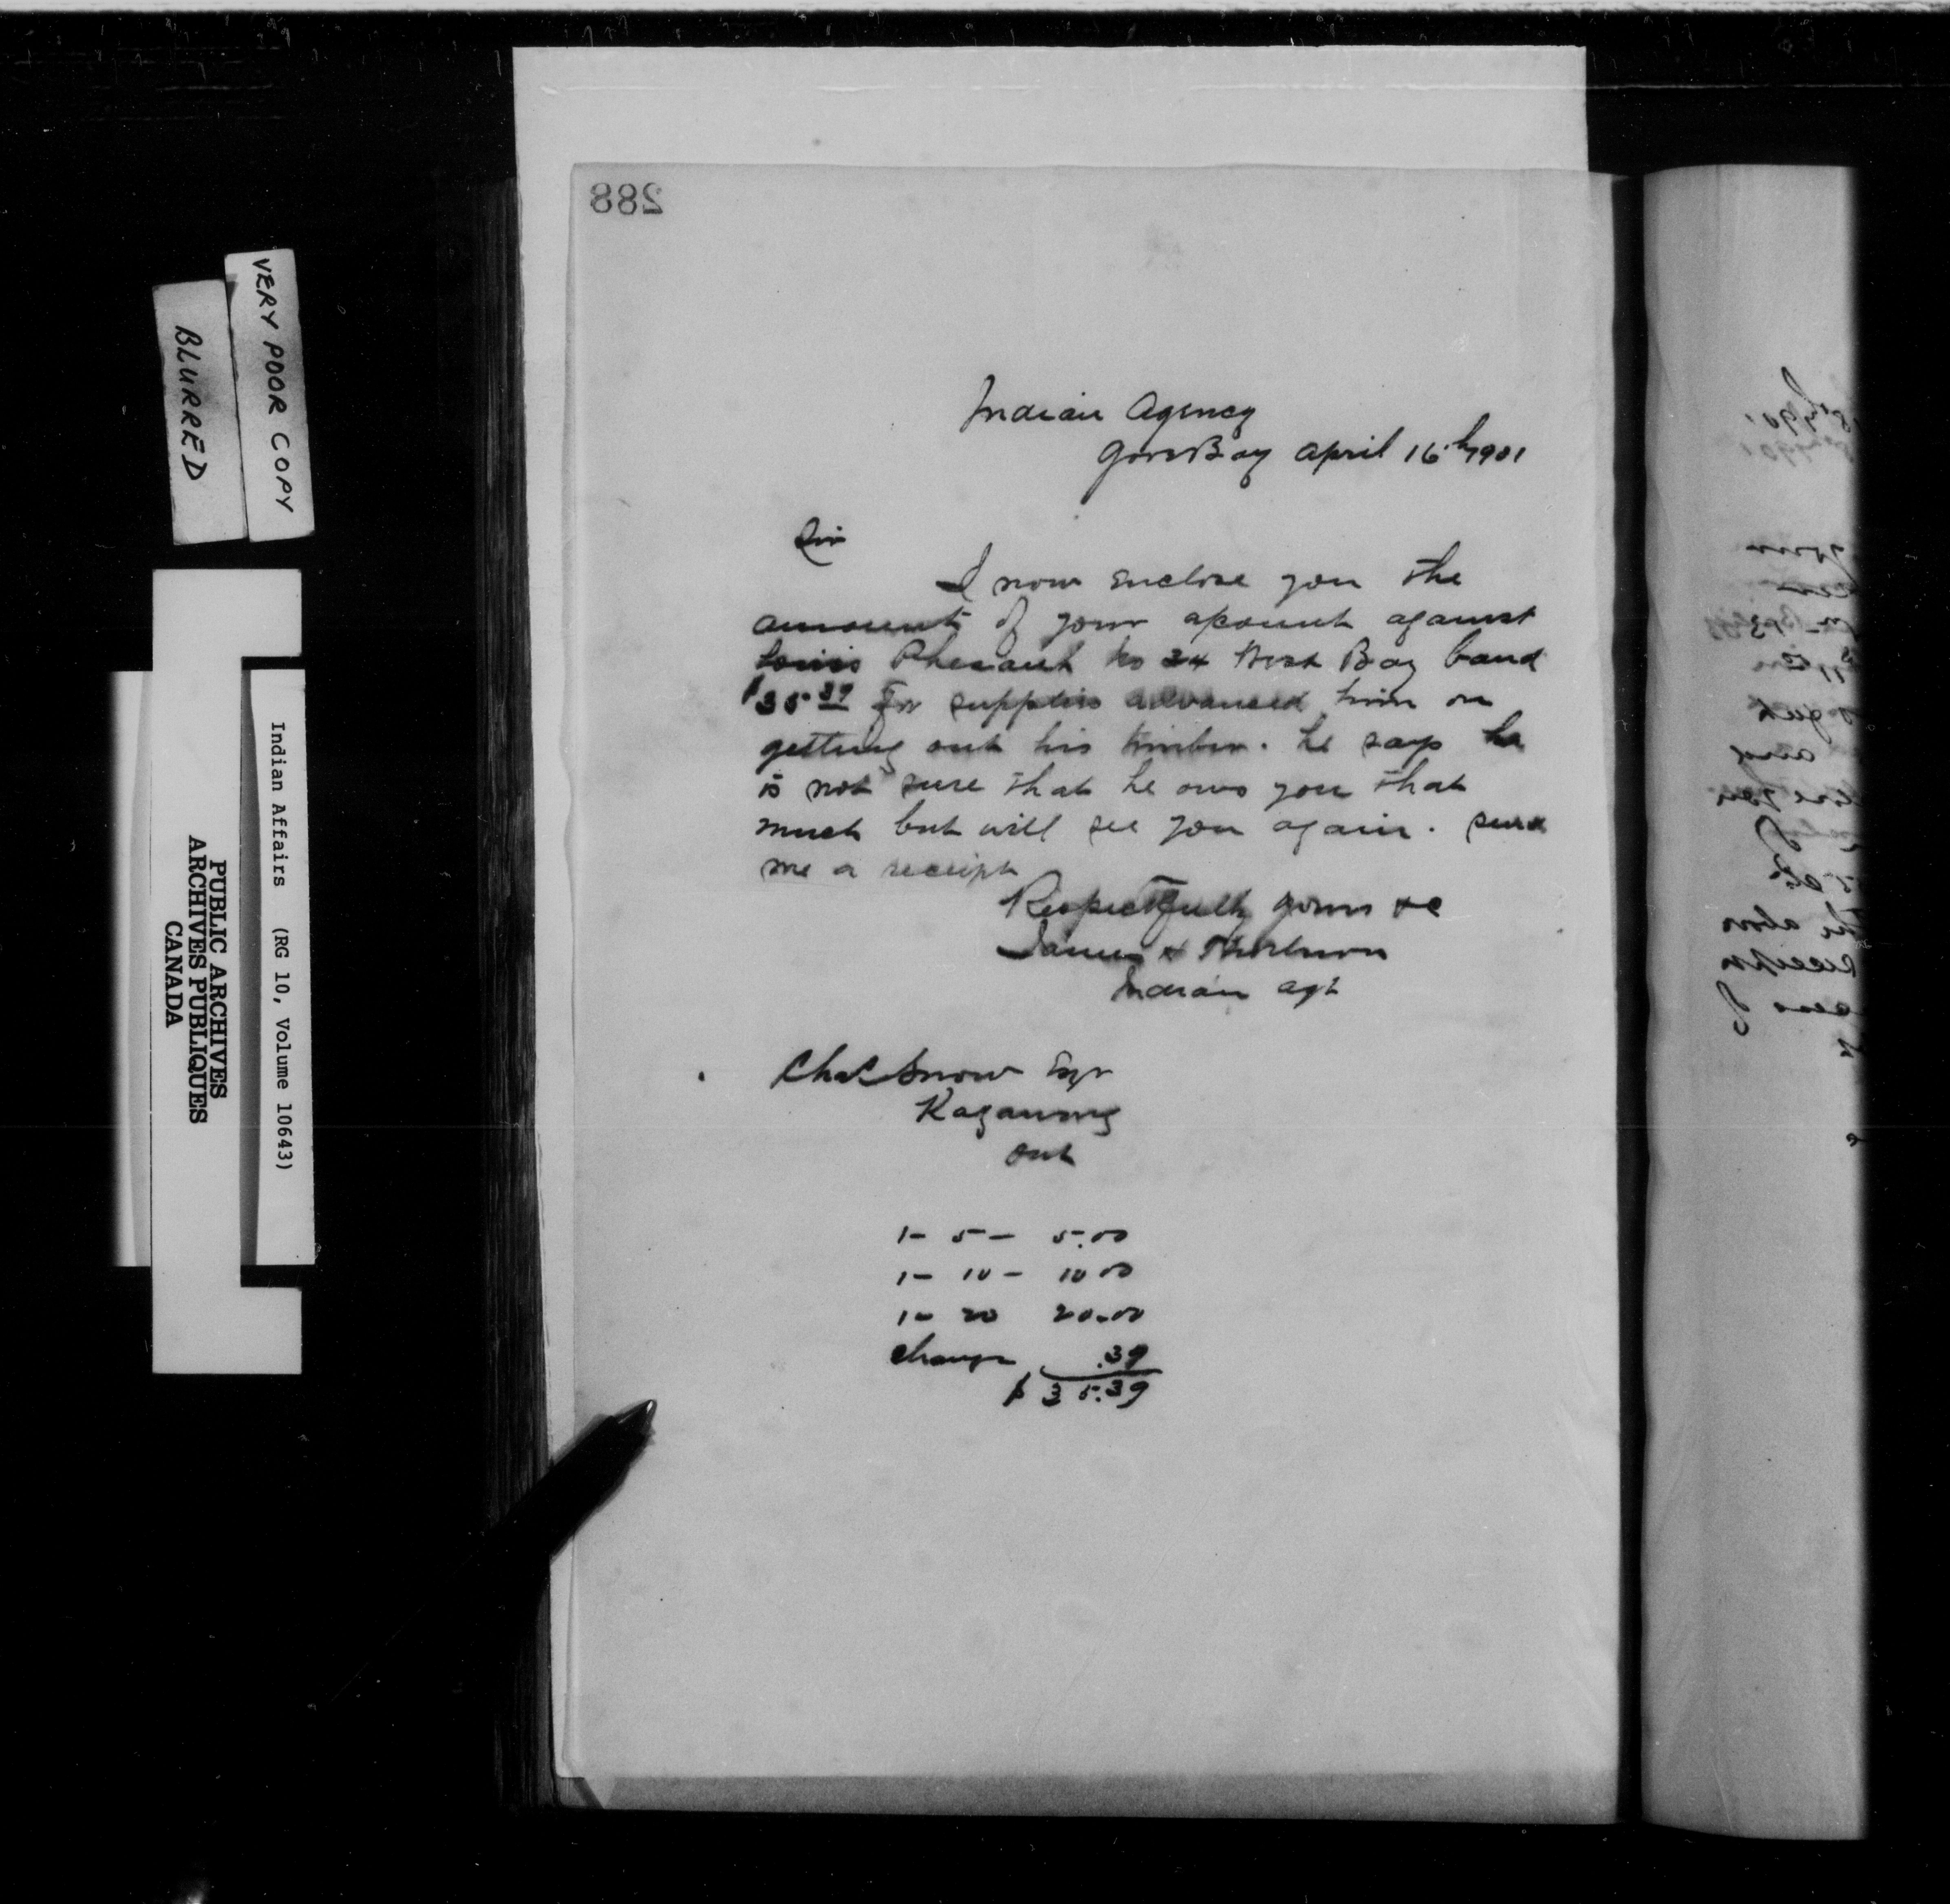 288
VERY POOR COPY
BLURRED
Indian Affairs (RG 10, Volume 10643)
PUBLIC ARCHIVES
ARCHIVES PUBLIQUES
CANADA
Indian Agency
Gore Bay April 16th 1901
Sir
I now enclose you the
amount of your acount against
Louis Phesant No 24 West Bay band
$35 39 for supplies advanced him on
getting out his timber. he says he
is not sure that he ows you that
much but will see you again. send
me a receipt
Respectfully yours &c
James H Thorburn
Indian agt
Chas Snow Esqr
Kagawong
Ont
1- 5- 5.00
1- 10- 10 00
1- 20 20.00
Change .39
$ 35.39